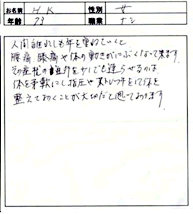 お名前 H K 性別 女
年齢 73 職業 ナシ
人間誰れしも年を重ねていくと
腰痛 膝痛や体の動きがにぶくなって来ます。
その老化の進行を少しでも遅らせるのは
体を柔軟にし指圧や 矢トレ等をして体を
整えておくことが大切だと思っております。